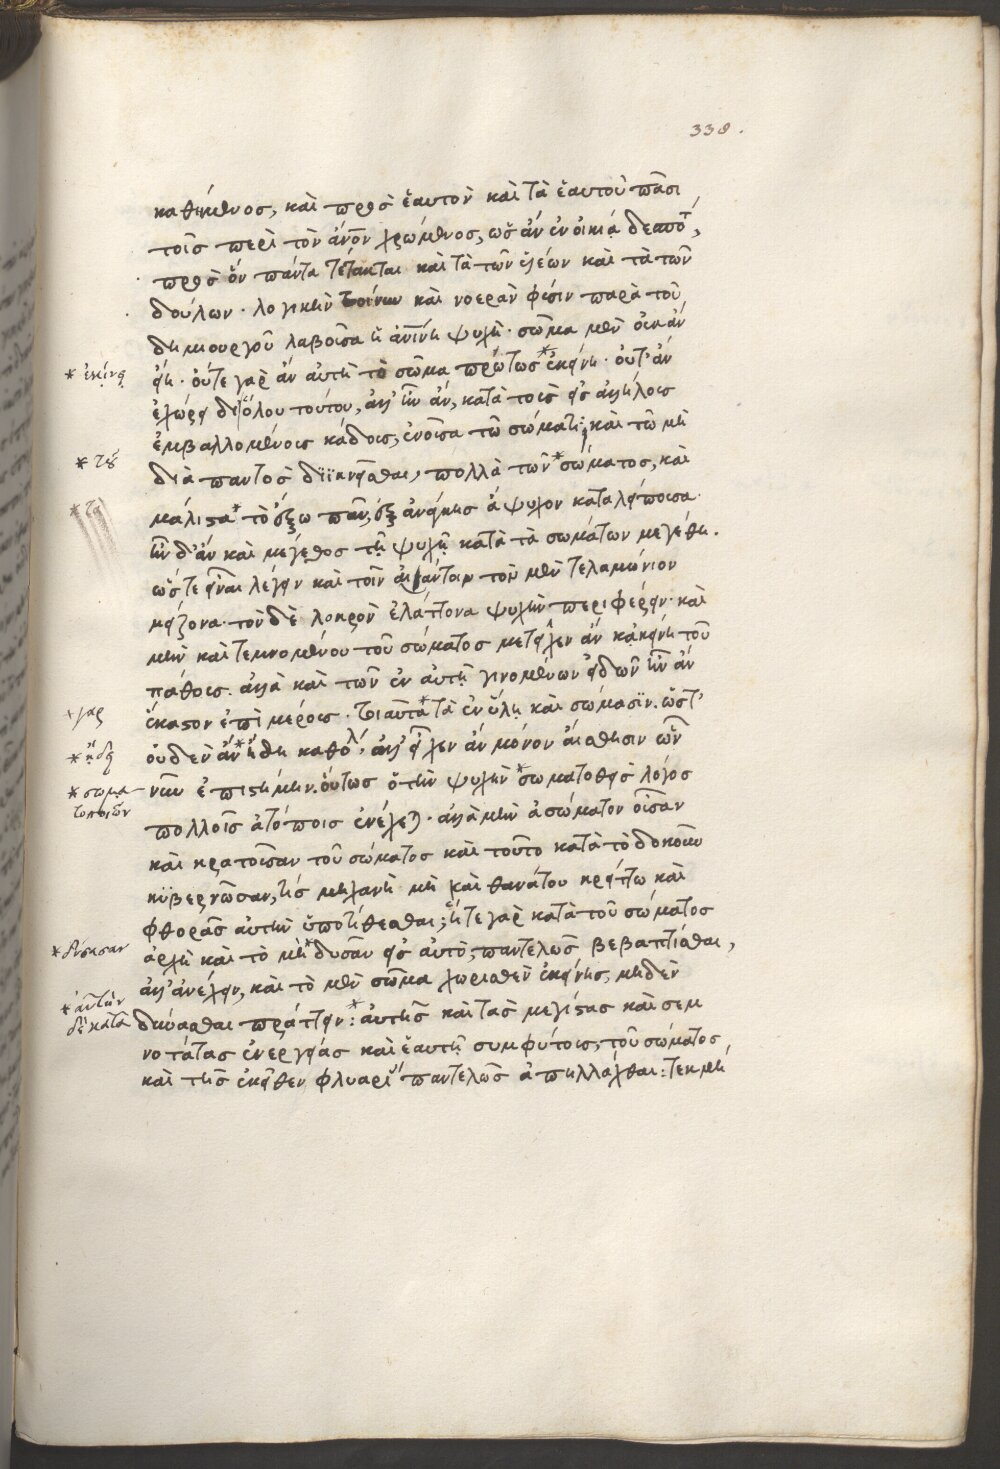 338.
καθήμενος, καὶ πρὸς ἑαυτὸν καὶ τὰ ἑαυτοῦ πᾶσι
τοῖς περὶ τὸν ἀνον χρώμενος, ὡς ἂν ἐν οἰκίᾳ δεσπότ,
πρὸς ὃν πάντα τέτακται καὶ τὰ τῶν υἱέων καὶ τὰ τῶν
δούλων. λογικὴν τοίνυν καὶ νοερὰν φύσιν παρὰ τοῦ
δημιουργοῦ λαβοῦσα ἡ ἀνίνη ψυχὴ. σῶμα μὲν οὐκ ἂν
* ἐκείνῃ εἴη. οὔτε γὰρ ἂν αὐτὴ τὸ σῶμα πρώτως * ἐκίνει. οὔτ' ἂν
ἐχώρει δι' ὅλου τούτου, ἀλλ' ἦν ἂν, κατὰ τοὺς εἰς ἀλλήλους
ἐμβαλλομένους κάδους, ἐνοῦσα τῷ σώματι; καὶ τῷ μὴ
* τοῦ διὰ παντὸς διϊκνεῖσθαι, πολλὰ τῶν * σώματος, καὶ
* τὸ μάλιστα * τὸ ἔξω πᾶν, ἐξ ἀνάγκης ἄψυχον καταλείπουσα.
ἦν δ' ἂν καὶ μέγεθος τῇ ψυχῇ κατὰ τὰ σωμάτων μεγέθη.
ὥστε εἶναι λέγειν καὶ τοῖν αἰάντοιν τὸν μὲν τελαμώνιον
μείζονα. τὸν δὲ λοκρὸν ἐλάττονα ψυχὴν περιφέρειν. καὶ
μὴν καὶ τεμνομένου τοῦ σώματος μετεῖχεν ἂν κἀκείνη τοῦ
πάθους. ἀλλὰ καὶ τῶν ἐν αὐτῇ γινομένων εἰδῶν ἦν ἂν
+ γαρ ἕκαστον ἐπὶ μέρους. τοιαῦτα * τὰ ἐν ὕλῃ καὶ σώμασϊν. ὥστ'
* ᾔδει οὐδὲν ἂν * ἤδη καθόλ, ἀλλ' εἶχεν ἂν μόνον αἴσθησιν ὧν
* σωματοποιῶν νῦν ἐπιστήμην. οὕτως ὁ τὴν ψυχὴν * σωματοθεὶς λόγος
πολλοῖς ἀτόποις ἐνέχετ. ἀλλὰ μὴν ἀσώματον οὖσαν
καὶ κρατοῦσαν τοῦ σώματος καὶ τοῦτο κατὰ τὸ δοκοῦν
κϋβερνῶσαν, τίς μηχανὴ μὴ καὶ θανάτου κρείττω καὶ
φθορᾶς αὐτὴν ὑποτίθεσθαι; ἥ τε γὰρ κατὰ τοῦ σώματος
* δύσασαν ἀρχὴ καὶ τὸ μὴ * δυσᾶν εἰς αὐτὸ, παντελῶς βεβαπτίσθαι,
ἀλλ' ἀνέχειν, καὶ τὸ μὲν σῶμα χωρισθὲν ἐκείνης, μηδὲν
* αὐτὴν δὲ κατὰ δύνασθαι πράττειν: * αὐτῆς καὶ τὰς μεγίστας καὶ σεμ
νοτάτας ἐνεργείας καὶ ἑαυτῇ συμφύτους, τοῦ σώματος
καὶ τῆς ἐκεῖθεν φλυαρί παντελῶς ἀπηλλάχθαι: τεκμή